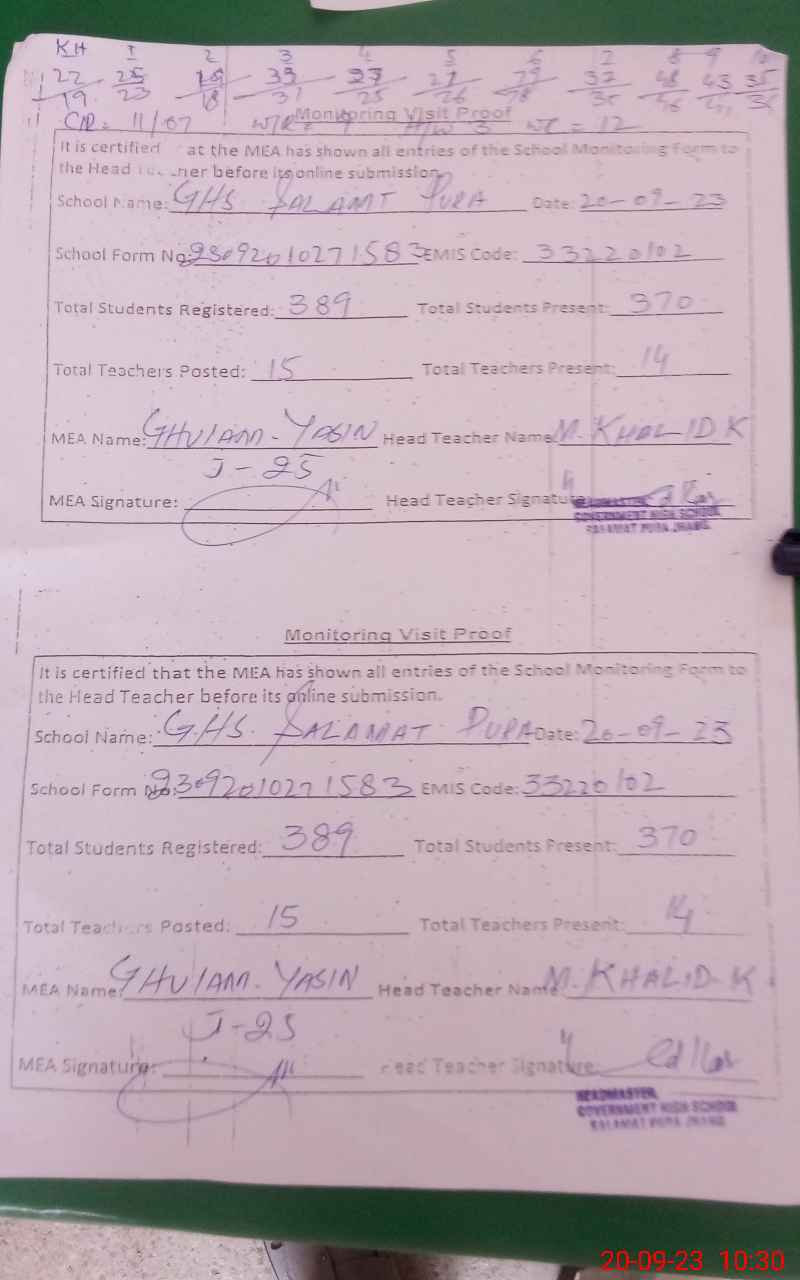 KH 1 2 3 4 5 6 7 8 9 10
22 25 39 27 48 43 35
19 23 18 31 25 26 78 35 46 36
C/R = 11/07 = 12
Monitoring Visit Proof
It is certified at the MEA has shown all entries of the School Monitoring Form to
the Head her before its online submission.
School Name: GHS SALAMT PURA Date: 20-09-23
School Form No: 23092010271583 EMIS Code: 33220102
Total Students Registered: 389 Total Students Present: 370
Total Teachers Posted: 15 Total Teachers Present: 14
MEA Name: GHULAM-YASIN Head Teacher Name: M. KHALID K
J-25
MEA Signature: Head Teacher Signature
HEADMASTER,
GOVERNMENT HIGH SCHOOL
SALAMAT PURA JHANG
Monitoring Visit Proof
It is certified that the MEA has shown all entries of the School Monitoring Form to
the Head Teacher before its online submission.
School Name: GHS. SALAMAT PURA Date: 20-09-23
School Form No: 23092010271583 EMIS Code: 33220102
Total Students Registered: 389 Total Students Present: 370
Total Teachers Posted: 15 Total Teachers Present: 14
MEA Name: GHULAM-YASIN Head Teacher Name M. KHALID-K
J-25
MEA Signature: Head Teacher Signature:
HEADMASTER,
GOVERNMENT HIGH SCHOOL
SALAMAT PURA JHANG
20-09-23 10:30